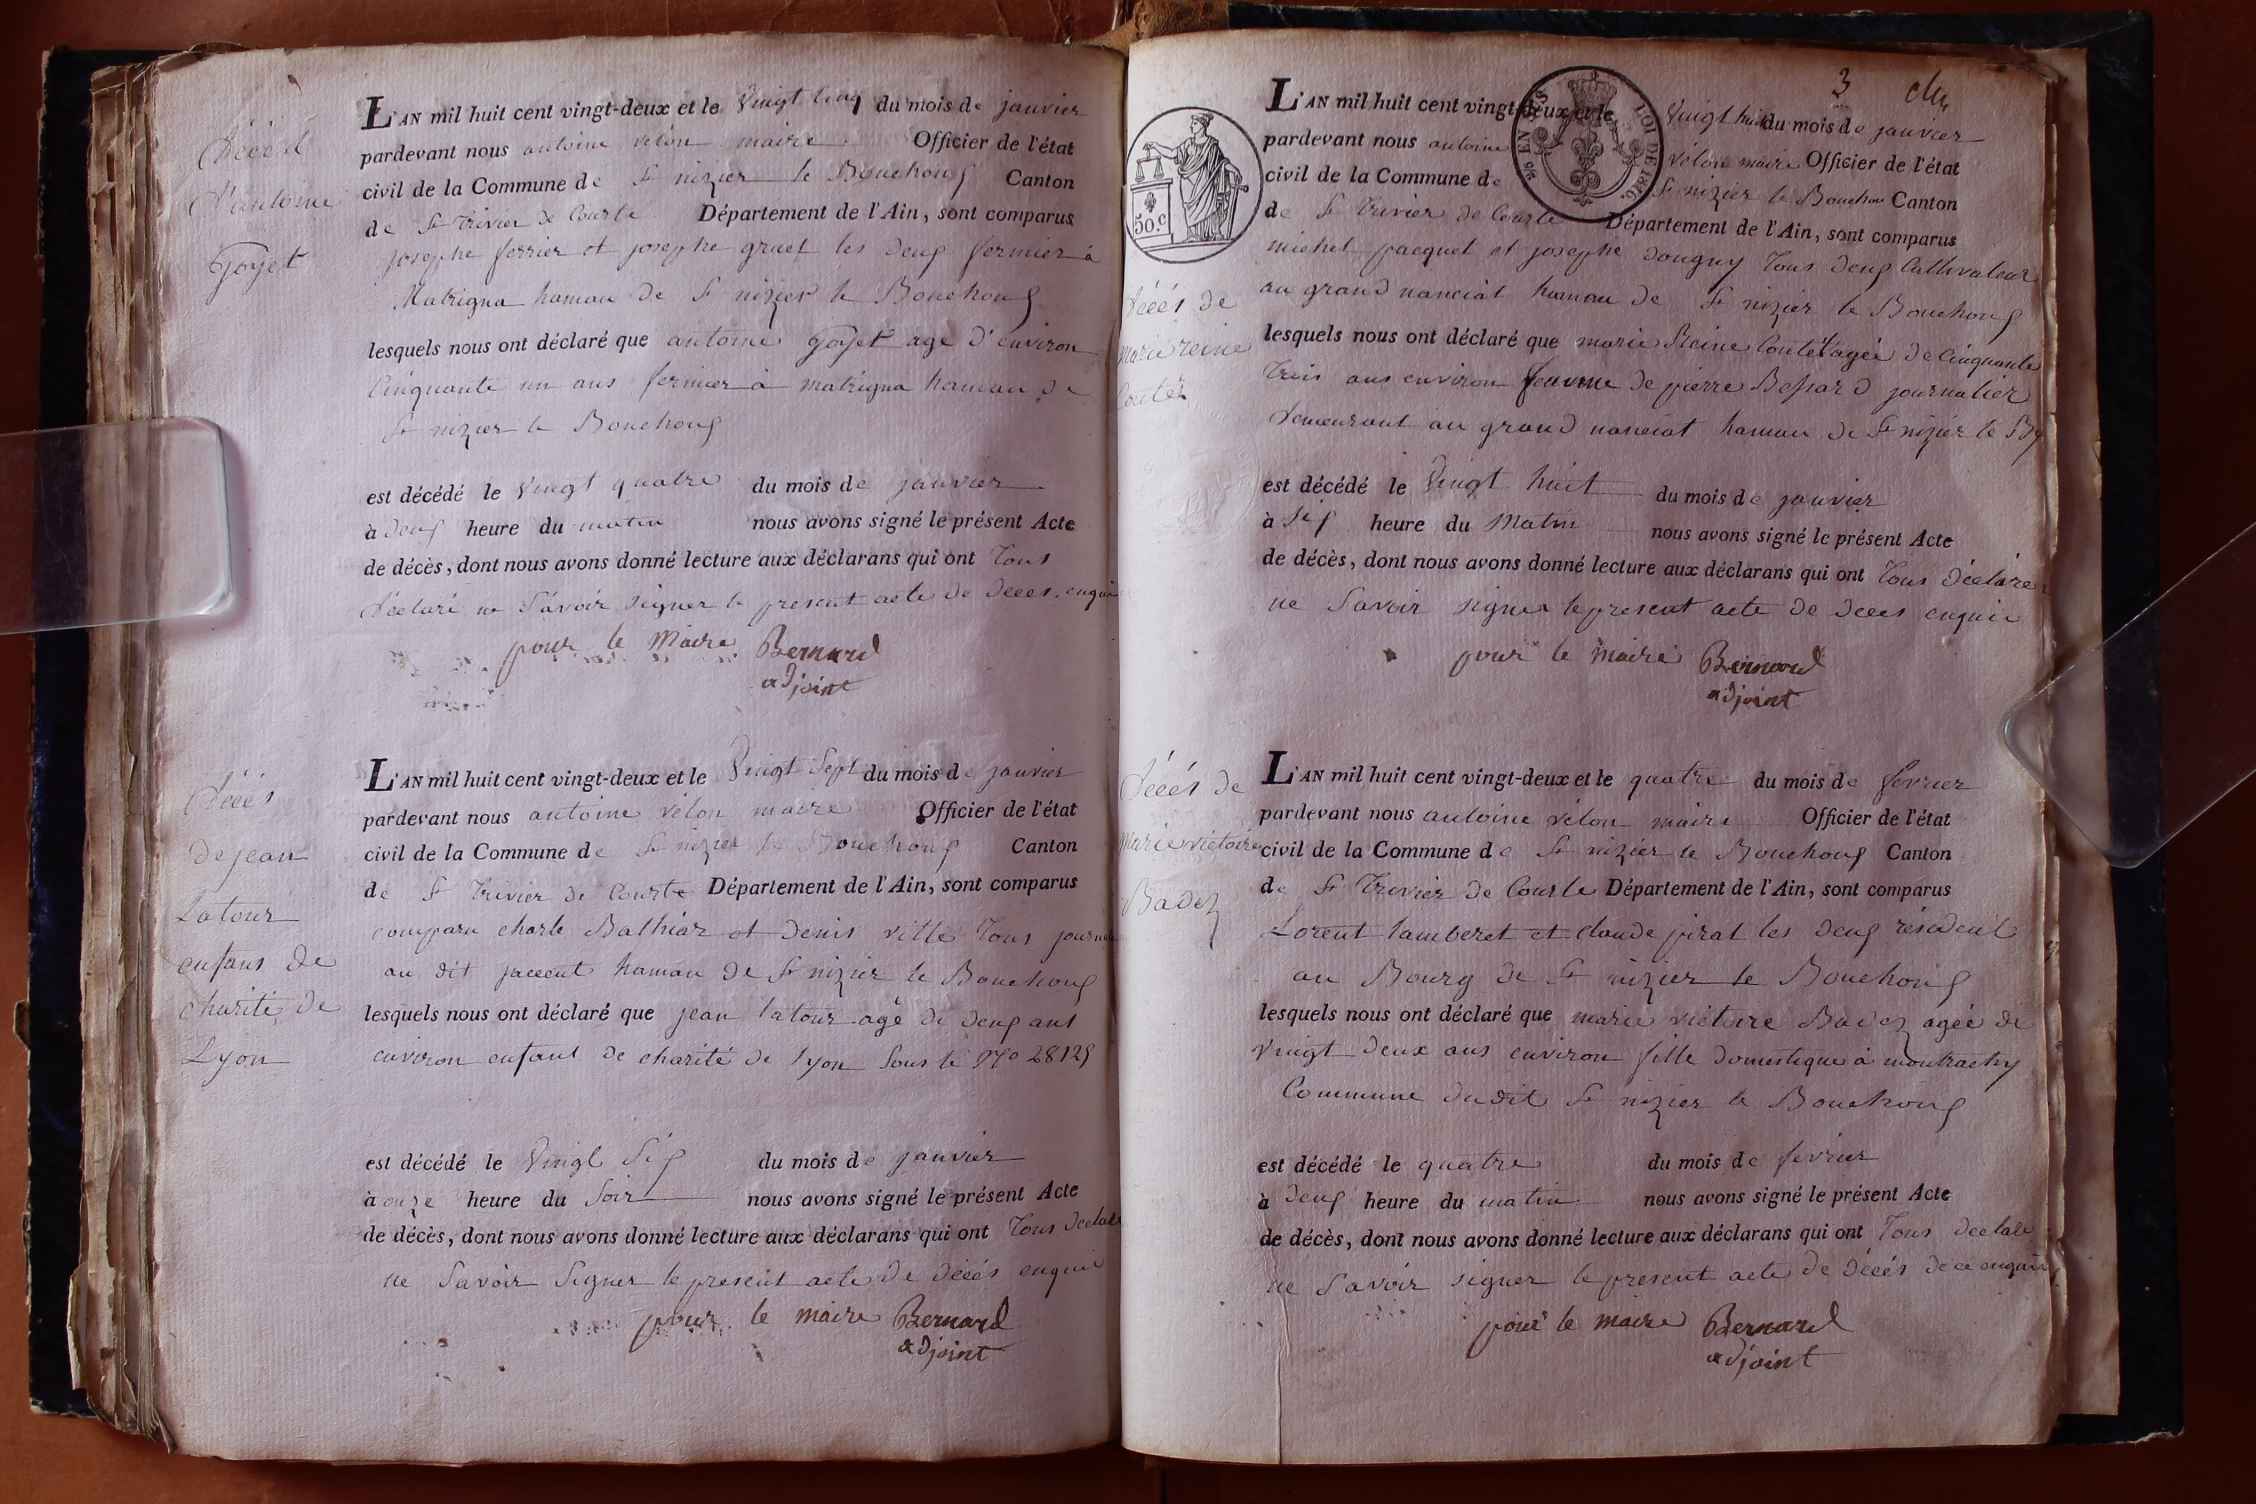 décès
d'antoine
Goyet
L'AN mil huit cent vingt-deux et le vingt cinq du mois de janvier
pardevant nous antoine vélon maire Officier de l'état
civil de la Commune de St nizier le Bouchoug Canton
de St trivier de Courte Département de l'Ain, sont comparus
josephe ferrier et josephe gruet les deug fermier à
Matrigna hamau de St nizier le Bouchoug
lesquels nous ont déclaré que antoine Goyet age d'environ
Cinquante un ans fermier à matrigna hamau de
St nizier le Bouchoug
est décédé le vingt quatre du mois de janvier
à deug heure du matin nous avons signé le présent Acte
de décès, dont nous avons donné lecture aux déclarans qui ont tous
déclaré ne savoir signer le present acte de decès enquis
pour le Maire Bernard
adjoint
décés
de jean
Latour
enfans de
charité de
Lyon
L'AN mil huit cent vingt-deux et le vingt sept du mois de janvier
pardevant nous antoine vélon maire Officier de l'état
civil de la Commune de St nizier le Bouchoug Canton
de St trivier de Courte Département de l'Ain, sont comparus
comparu charle Bathiar et denis ville tous
au dit hamau de St nizier le Bouchoug
lesquels nous ont déclaré que jean latour agé de deug ans
environ enfant de charité de lyon sous le No 28129
est décédé le vingt sig du mois de janvier
à onze heure du soir nous avons signé le présent Acte
de décès, dont nous avons donné lecture aux déclarans qui ont tous declaré
ne savoir signer le present acte de décés enquis
pour le maire Bernard
adjoint
3
50.c
EN SUS
LOI DE 1816.
décés de
marie reine
Coutet
L'AN mil huit cent vingt-deux et le vingt huit du mois de janvier
pardevant nous antoine vélon maire Officier de l'état
civil de la Commune de St nizier le Bouchou Canton
de St trivier de Courte Département de l'Ain, sont comparus
michel pacquet et josephe dougny tous deug Cultivateur
au grand nanciat hamau de St nizier le Bouchoug
lesquels nous ont déclaré que marie Reine Coutet agée de Cinquante
trois ans environ femme de pierre Bessard journalier
demeurant au grand nanciat hamau de St nizier le
est décédé le vingt huit du mois de janvier
à sig heure du Matin nous avons signé le présent Acte
de décès, dont nous avons donné lecture aux déclarans qui ont tous déclaré
ne savoir signer le present acte de deces enquis
pour le maire Bernard
adjoint
décés de
marie victoire
Badez
L'AN mil huit cent vingt-deux et le quatre du mois de fevrier
pardevant nous antoine vélon maire Officier de l'état
civil de la Commune de St nizier le Bouchoug Canton
de St trivier de Courte Département de l'Ain, sont comparus
Lorent lamberet et claude pirat les deug résident
au Bourg de St nizier le Bouchoug
lesquels nous ont déclaré que marie victoire Badez agée de
vingt deux ans environ fille domestique à montrachy
Commune dudit St nizier le Bouchoug
est décédé le quatre du mois de février
à deug heure du matin nous avons signé le présent Acte
de décès, dont nous avons donné lecture aux déclarans qui ont tous declaré
ne savoir signer le present acte de décés de ce enquis
pour le maire Bernard
adjoint